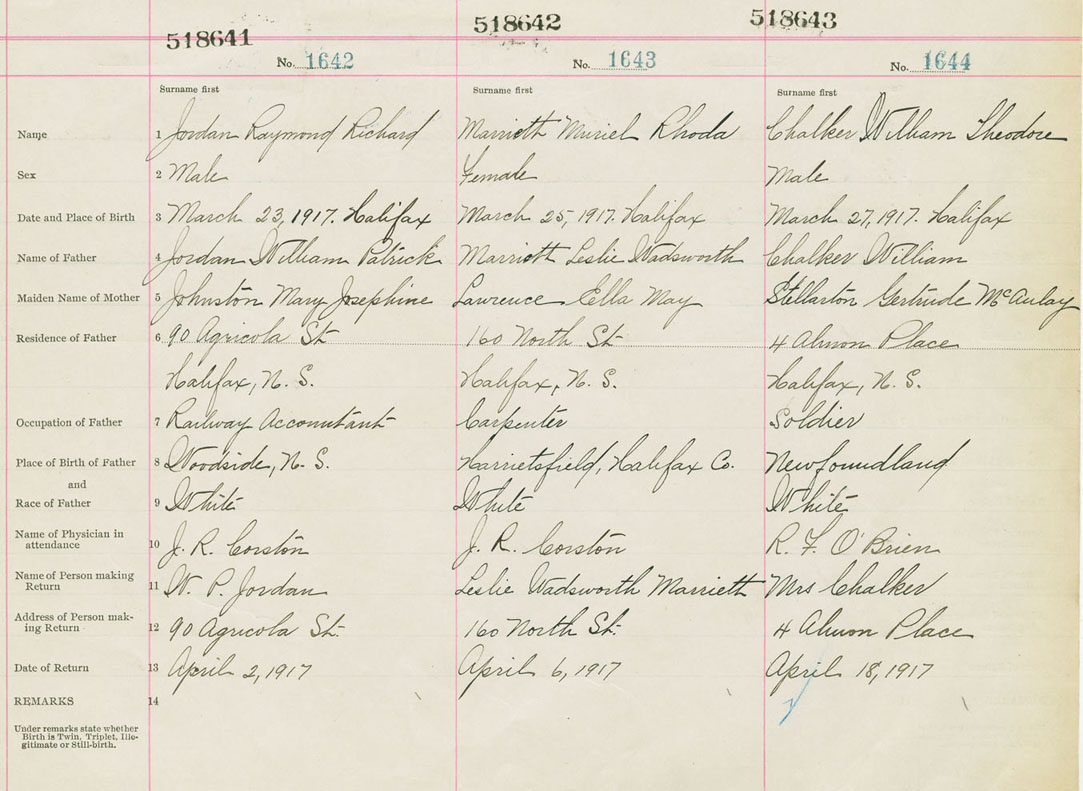 518641 518642 518643
No. 1642 No. 1643 No. 1644
Surname first Surname first Surname first
Name 1 Jordan Raymond Richard Marrieth Muriel Rhoda Chalker William Theodore
Sex 2 Male Female Male
Date and Place of Birth 3 March 23, 1917. Halifax March 25, 1917. Halifax March 27, 1917. Halifax
Name of Father 4 Jordan William Patrick Marrieth Leslie Wadsworth Chalker William
Maiden Name of Mother 5 Johnston Mary Josephine Lawrence Ella May Stellarton Gertrude McAulay
Residence of Father 6 90 Agricola St. 160 North St. 4 Almon Place
Halifax, N. S. Halifax, N. S. Halifax, N. S.
Occupation of Father 7 Railway Accountant Carpenter Soldier
Place of Birth of Father 8 Woodside, N. S. Harrietsfield, Halifax Co. Newfoundland
and
Race of Father 9 White White White
Name of Physician in
attendance 10 J. R. Corston J. R. Corston R. F. O'Brien
Name of Person making
Return 11 W. P. Jordan Leslie Wadsworth Marrieth Mrs Chalker
Address of Person mak-
ing Return 12 90 Agricola St. 160 North St. 4 Almon Place
Date of Return 13 April 2, 1917 April 6, 1917 April 18, 1917
REMARKS 14
Under remarks state whether
Birth is Twin, Triplet, Ille-
gitimate or Still-birth.